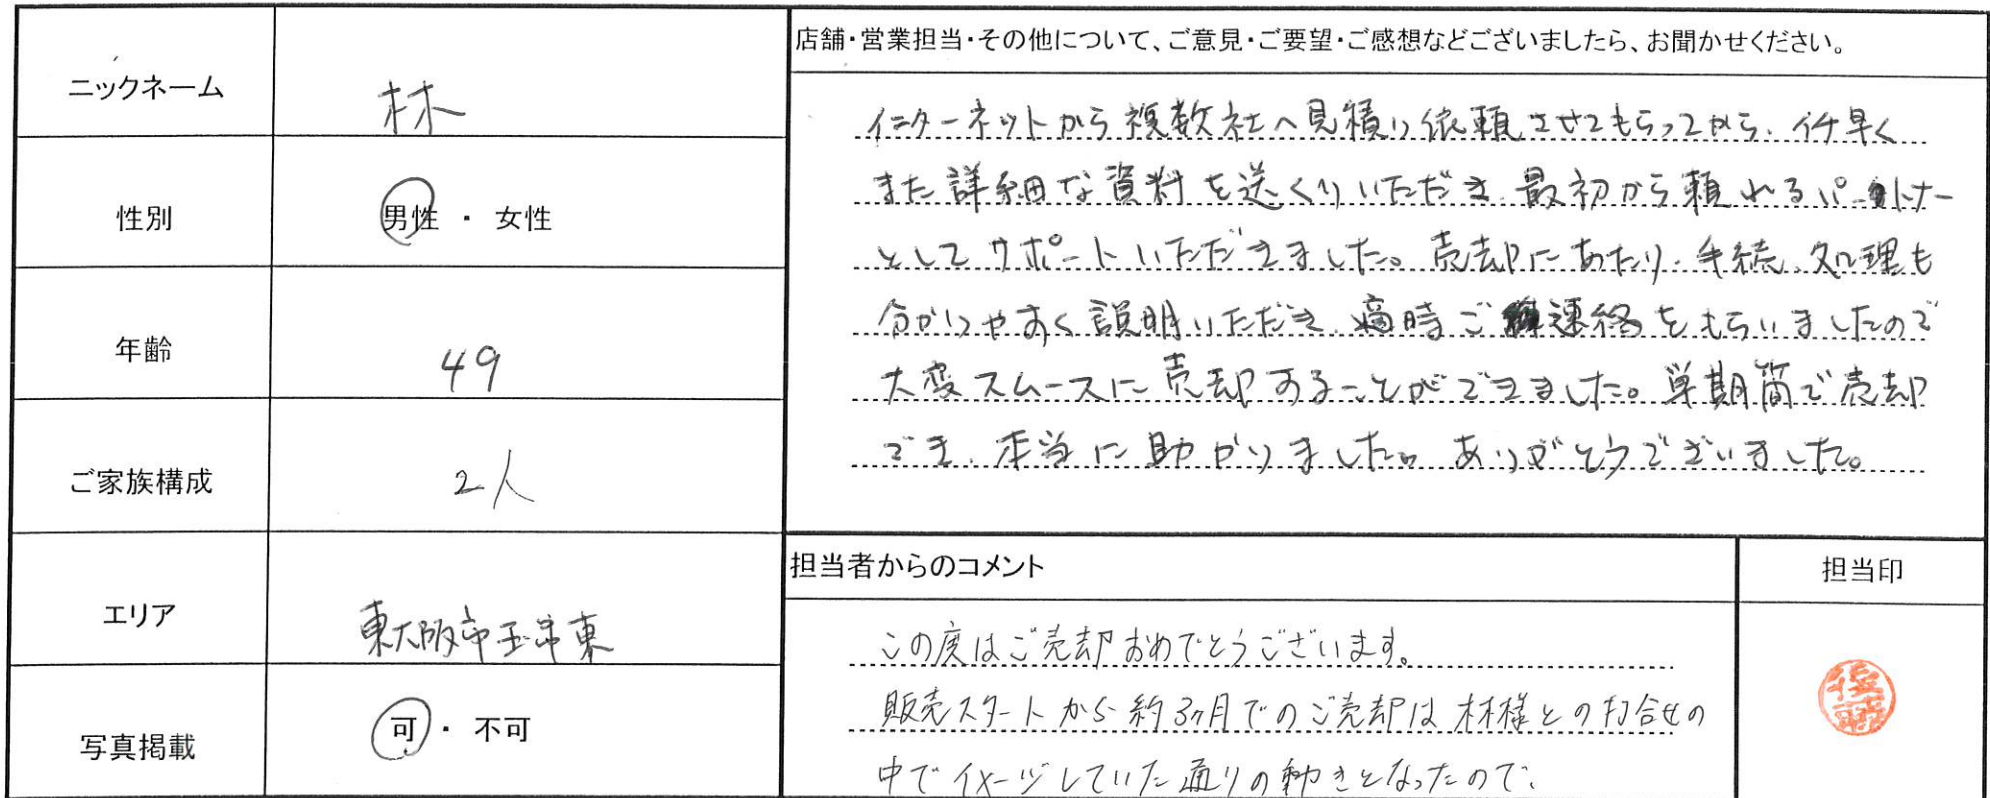 ニックネーム
林
性別
男性・女性
年齢
49
ご家族構成
2人
エリア
東大阪市玉串東
写真掲載
可・不可
店舗・営業担当・その他について、ご意見・ご要望・ご感想などございましたら、お聞かせください。
インターネットから複数社へ見積り依頼させてもらってから、イチ早く
また詳細な資料を送くりいただき、最初から頼れるパートナー
としてサポートいただきました。売却にあたり、手続、処理も
分かりやすく説明いただき、適時ご連絡をもらいましたので
大変スムースに売却することができました。単期間で売却
でき、本当に助かりました。ありがとうございました。
担当者からのコメント
この度はご売却おめでとうございます。
販売スタートから約3ヶ月でのご売却は林様との打合せの
中でイメージしていた通りの動きとなったので、
担当印